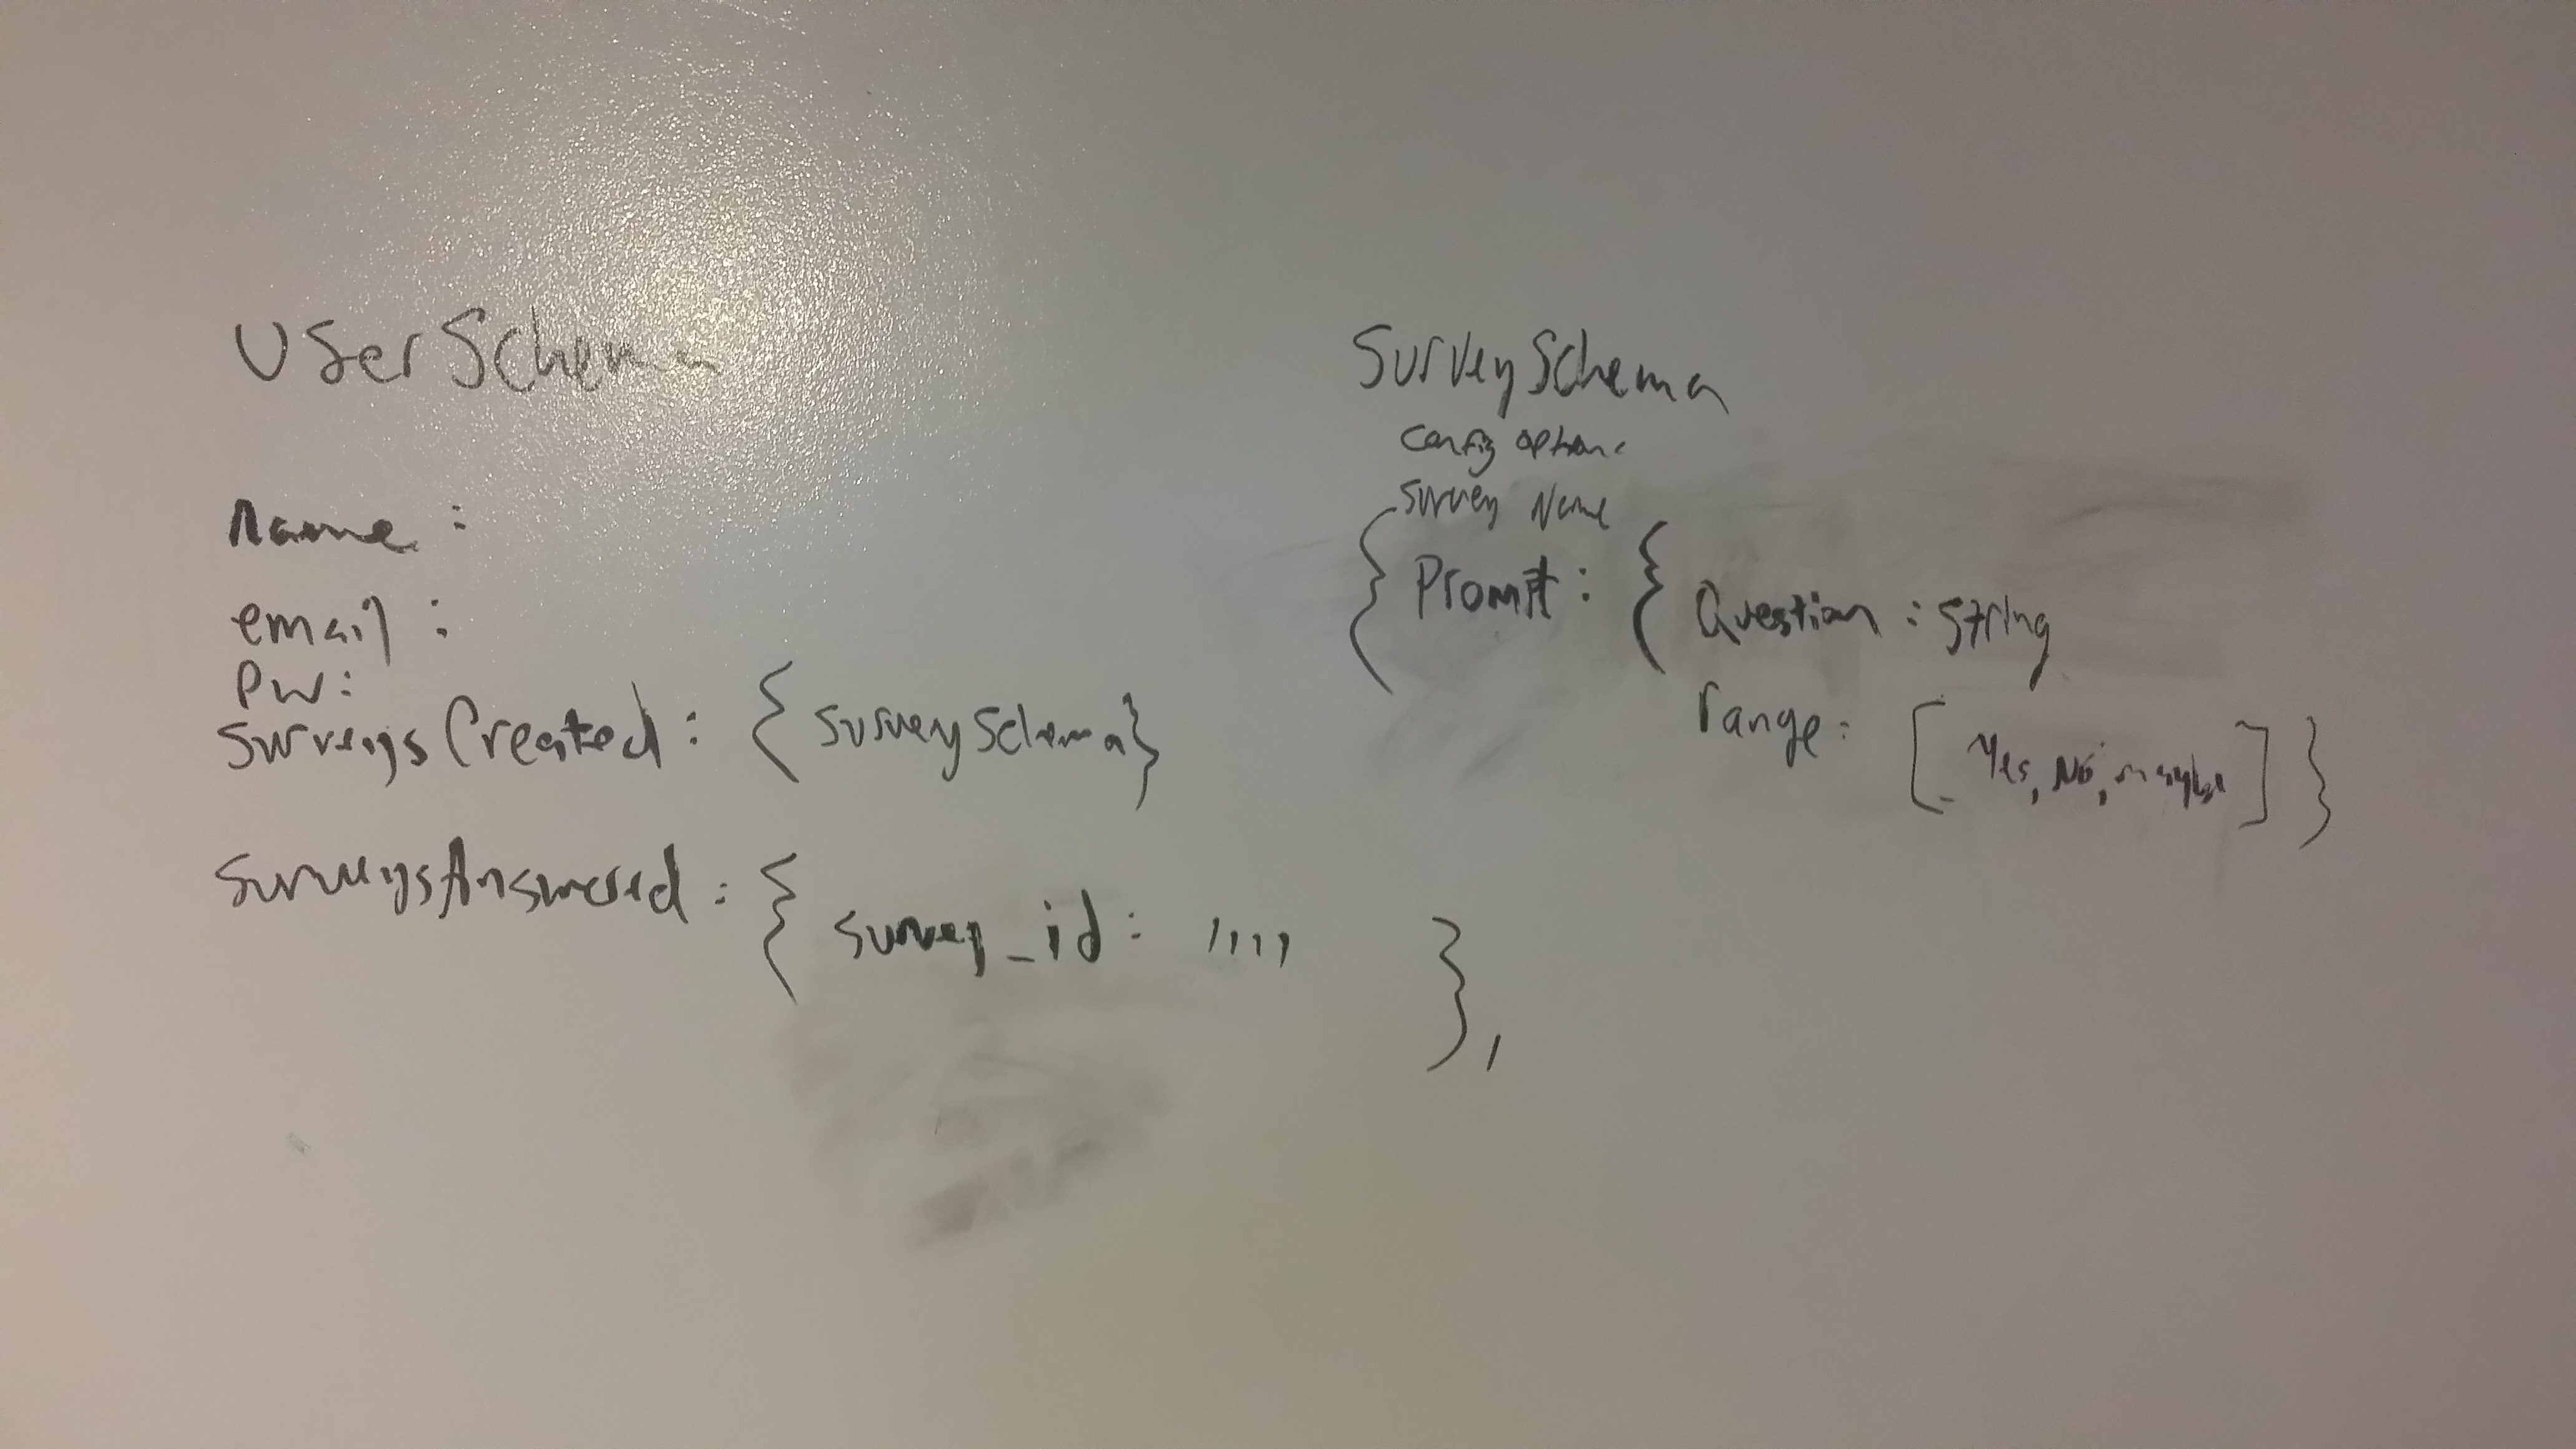 UserSchema
Name :
email :
PW:
surveysCreated : { surveySchema}
surveysAnswered : { survey_id: ,,,, },
SurveySchema
Config options
Survey Name
{ Promt : { Question : string
range: [ Yes, No, maybe ] }